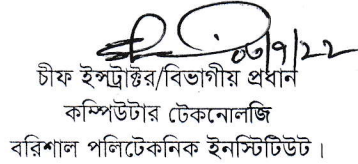 ০৬/৭/২২
চীফ ইন্সট্রাক্টর/বিভাগীয় প্রধান
কম্পিউটার টেকনোলজি
বরিশাল পলিটেকনিক ইনস্টিটিউট।